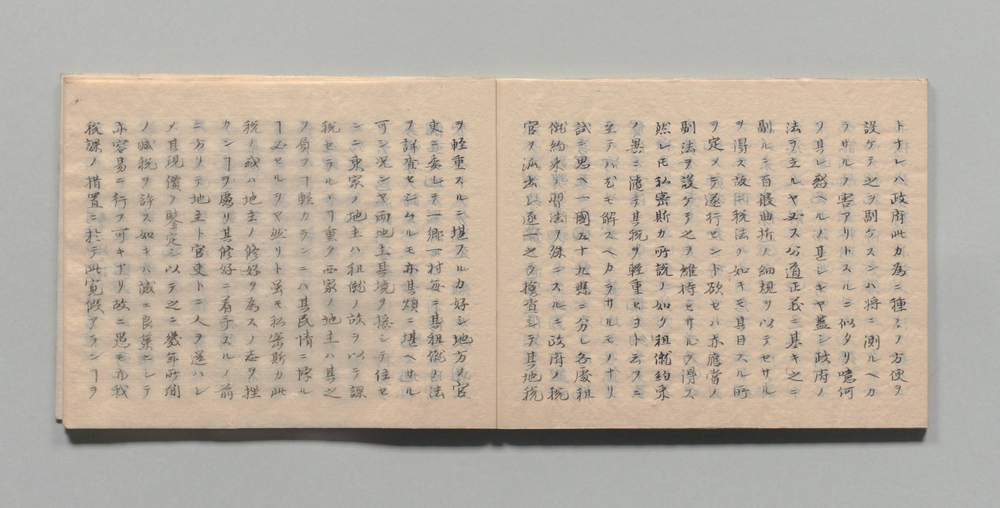 トナレハ政府此カ為ニ種ミノ方便ヲ
設ケテ之ヲ副ケスンハ将ニ測ルヘカ
ラサルノ害アリトスルニ似タリ噫何
ソ其レ謬ヘルノ甚シキヤ蓋シ政府ノ
法ヲ立ルヤ必ス公道正義ニ基キ之ニ
副ルニ百般曲折ノ細規ヲ以テセサル
ヲ得ス故ニ税法ノ如キモ其目スル所
ヲ定メテ遂行セント欲セハ亦應當ノ
副法ヲ設ケテ之ヲ維持セサルヲ得ス
然レモ私密斯カ所説ノ如ク租僦約束
ノ異ニ随テ其税ヲ軽重セヨト云フニ
至テハ尤モ解スヘカラサルモノナリ
試ニ思ヘ一國五十九縣ニ分レ各處租
僦約束ノ習法ヲ殊ニスルニ政府ノ税
官ヲ派出シ逐一之ヲ檢査シテ其地税
ヲ軽重スルニ堪スルカ好シ地方ノ官
吏ニ委シテ一郷一村毎ニ其租僦ノ法
ヲ詳査セシムルモ亦其煩ニ堪ヘサル
可シ況ンヤ両地主其境ヲ接シテ住セ
ンニ東家ノ地主ハ租僦ノ故ヲ以テ課
税セラルヽヿ重ク西家ノ地主ハ其之
ヲ質フヿ軽カランニハ其民情ニ悖ル
ヿ必セルヲヤ然リト雖モ私密斯カ此
税ノ或ハ地主ノ修好ヲ為スノ志ヲ挫
カンヿヲ慮リ其修好ニ着手スルノ前
ニ方リテ地主ト官吏トニ人ヲ選ハレ
メ其現價ノ鑒定ヲ以テ之ニ幾年所間
ノ減税ヲ許ス如キハ誠ニ良策ニシテ
亦容易ニ行フ可キナリ故ニ愚モ亦我
税課ノ措置ニ於テ此寛假アランヿヲ